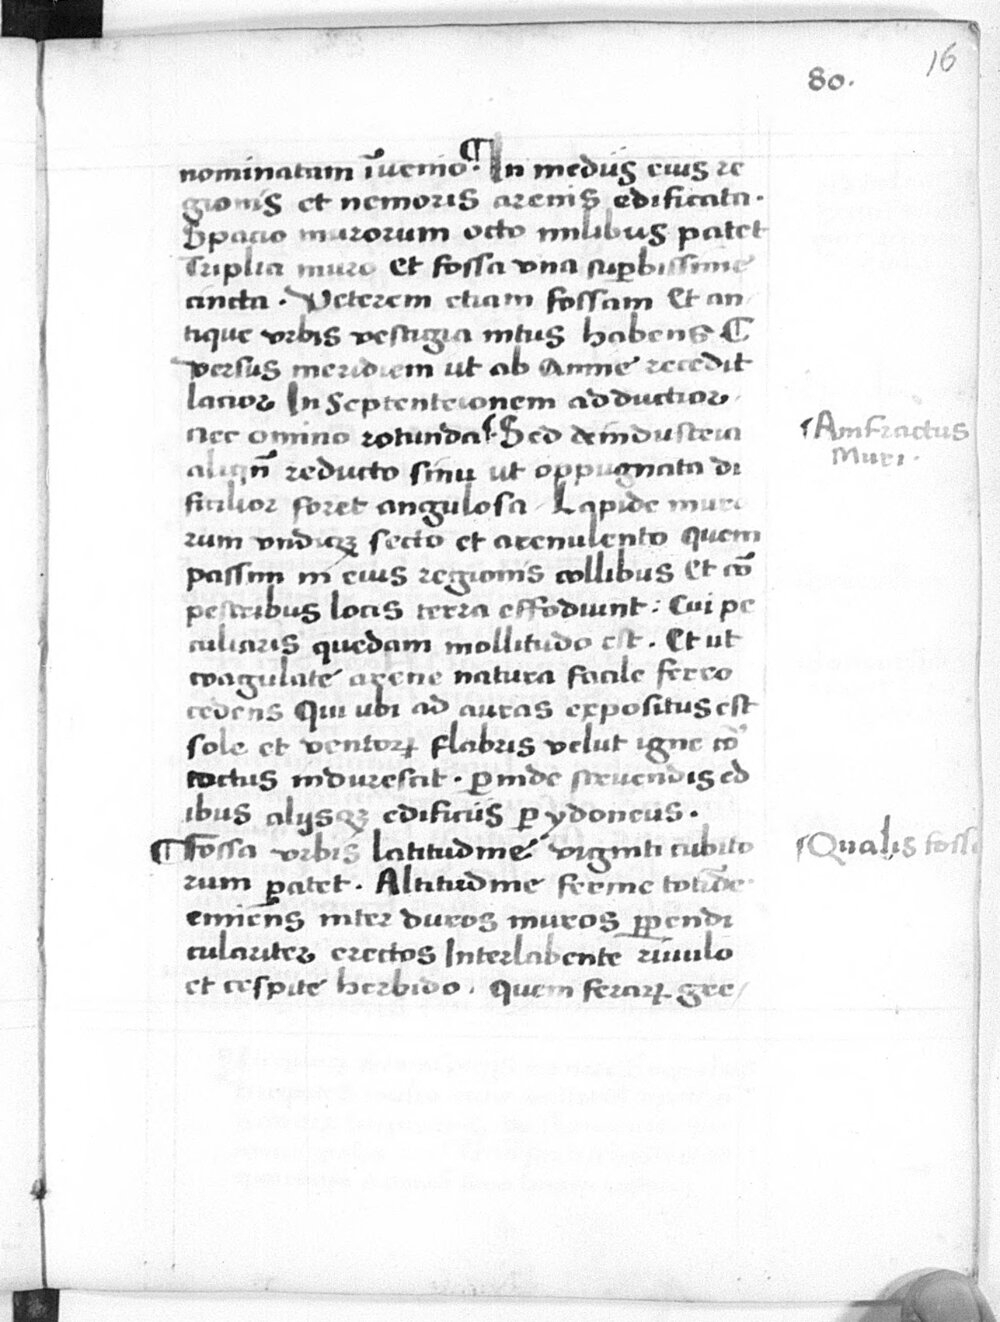 16
80.
nominatum īuenio. ¶ In mediis eius re
gionis et nemoris arenis edificata.
Spacio murorum octo milibus patet
Triplici muro et fossa vna suꝑbissime
cincta. Veterem etiam fossam et an
tique vrbis vestigia intus habens ¶
versus meridiem ut ab Amne recedit
lacior In Septentrionem adductior
nec omino rotunda. Sed de industria
aliqn̄ reducto sinu ut oppugnatu di
ficilior foret angulosa. Lapide muro
rum vndiqꝫ secto et arenulento quem
passim in eius regionis collibus et cō
pestribus locis terra effodiunt: Cui pe
culiaris quedam mollitudo est. Et ut
coagulate arene natura facile ferro
cedens Qui ubi ad auras expositus est
sole et ventoꝝ flabris velut igne cō
coctus indurescit. ꝑinde struendis ed
ibus alijsqꝫ edificiis ꝑ ydoneus.
¶ Fossa vrbis latitudine viginti cubito
rum ꝑatet. Altitudine ferme totidē
eminens inter duros muros ꝑpendi
culariter erectos Interlabente riuulo
et cespite herbido. quem feraꝝ gre/
Amfractus
Muri.
Qualis fossa